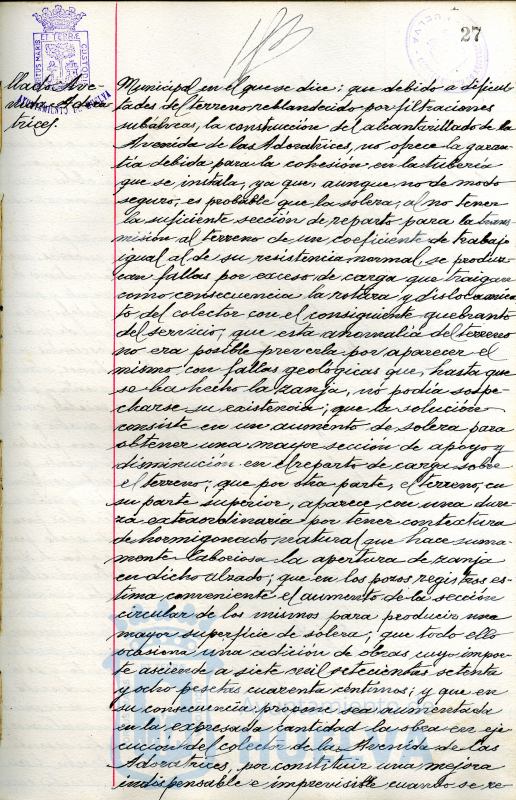 27
PORTUS MARIS ET TERRÆ CUSTODIA
AYUNTAMIENTO DE HUELVA
llado Ave-
nida Adora
trices.
Municipal en el que se dice; que debido a dificul-
tades del terreno reblandecido por filtraciones
subálveas, la construcción del alcantarillado de la
Avenida de las Adoratrices, no ofrece la garan-
tía debida para la cohesión en la tubería
que se instala, ya que, aunque no de modo
seguro, es probable que la solera, al no tener
la suficiente sección de reparto para la trans-
misión al terreno de un coeficiente de trabajo
igual al de su resistencia normal, se produz-
can fallas por exceso de carga que traigan
como consecuencia la rotura y dislocamien-
to del colector con el consiguiente quebranto
del servicio; que esta anomalía del terreno
no era posible preverla por aparecer el
mismo con fallas geológicas que, hasta que
se ha hecho la zanja, no podía sospe-
charse su existencia; que la solución
consiste en un aumento de solera para
obtener una mayor sección de apoyo y
disminución en el reparto de carga sobre
el terreno; que por otra parte, el terreno, en
su parte superior, aparece con una dure-
za extraordinaria por tener contextura
de hormigonado natural que hace suma-
mente laboriosa la apertura de zanja
en dicho alzado; que en los pozos registros es-
tima conveniente el aumento de la sección
circular de los mismos para producir una
mayor superficie de solera; que todo ello
ocasiona una adición de obras cuyo impor-
te asciende a siete mil setecientas setenta
y ocho pesetas cuarenta céntimos; y que en
su consecuencia propone sea aumentada
en la expresada cantidad la obra en eje-
cución del colector de la Avenida de las
Adoratrices, por constituir una mejora
indispensable e imprevisible cuando se re-
Ayuntamiento de
HUELVA